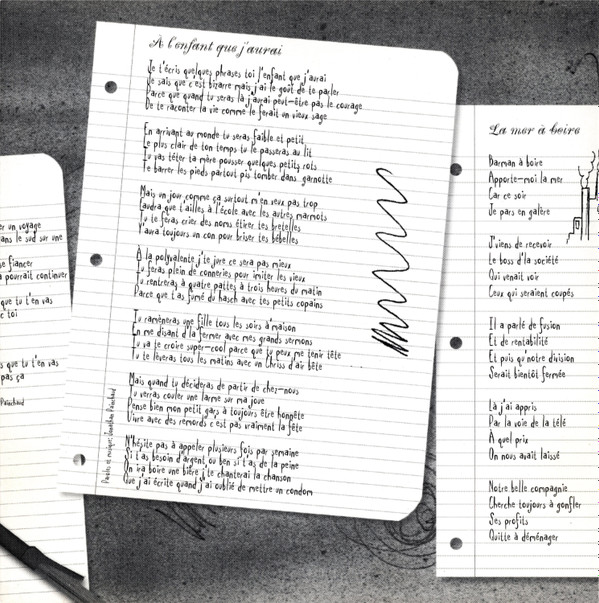 er un voyage
ans le sud sur une
e fiancer
a pourrait continuer
que tu t'en vas
c toi
s que tu t'en vas
pas ça
Painchaud
À l'enfant que j'aurai
Je t'écris quelques phrases toi l'enfant que j'aurai
Je sais que c'est bizarre mais j'ai le goût de te parler
Parce que quand tu seras là j'aurai peut-être pas le courage
De te raconter la vie comme le ferait un vieux sage
En arrivant au monde tu seras faible et petit
Le plus clair de ton temps tu le passeras au lit
Tu vas têter ta mère pousser quelques petits rots
Te barrer les pieds partout pis tomber dans garnotte
Mais un jour comme ça surtout m'en veux pas trop
Faudra que t'ailles à l'école avec les autres marmots
Tu te feras crier des noms étirer tes bretelles
Y'aura toujours un con pour briser tes bébelles
À la polyvalente j'te jure ce sera pas mieux
Tu feras plein de conneries pour imiter les vieux
Tu rentreras à quatre pattes à trois heures du matin
Parce que t'as fumé du hasch avec tes petits copains
Tu ramèneras une fille tous les soirs à maison
En me disant d'la fermer avec mes grands sermons
Tu va te croire super-cool parce que tu peux me tenir tête
Tu te lèveras tous les matins avec un Chriss d'air bête
Mais quand tu décideras de partir de chez-nous
Tu verras couler une larme sur ma joue
Pense bien mon petit gars à toujours être honnête
Vivre avec des remords c'est pas vraiment la fête
N'hésite pas à appeler plusieurs fois par semaine
Si t'as besoin d'argent ou ben si t'as de la peine
On ira boire une bière j'te chanterai la chanson
Que j'ai écrite quand j'ai oublié de mettre un condom
Paroles et musique: Jonathan Painchaud
La mer à boire
Barman à boire
Apporte-moi la mer
Car ce soir
Je pars en galère
J'viens de recevoir
Le boss d'la société
Qui venait voir
Ceux qui seraient coupés
Il a parlé de fusion
Et de rentabilité
Et puis qu'notre division
Serait bientôt fermée
Là j'ai appris
Par la voie de la télé
À quel prix
On nous avait laissé
Notre belle compagnie
Cherche toujours à gonfler
Ses profits
Quitte à déménager